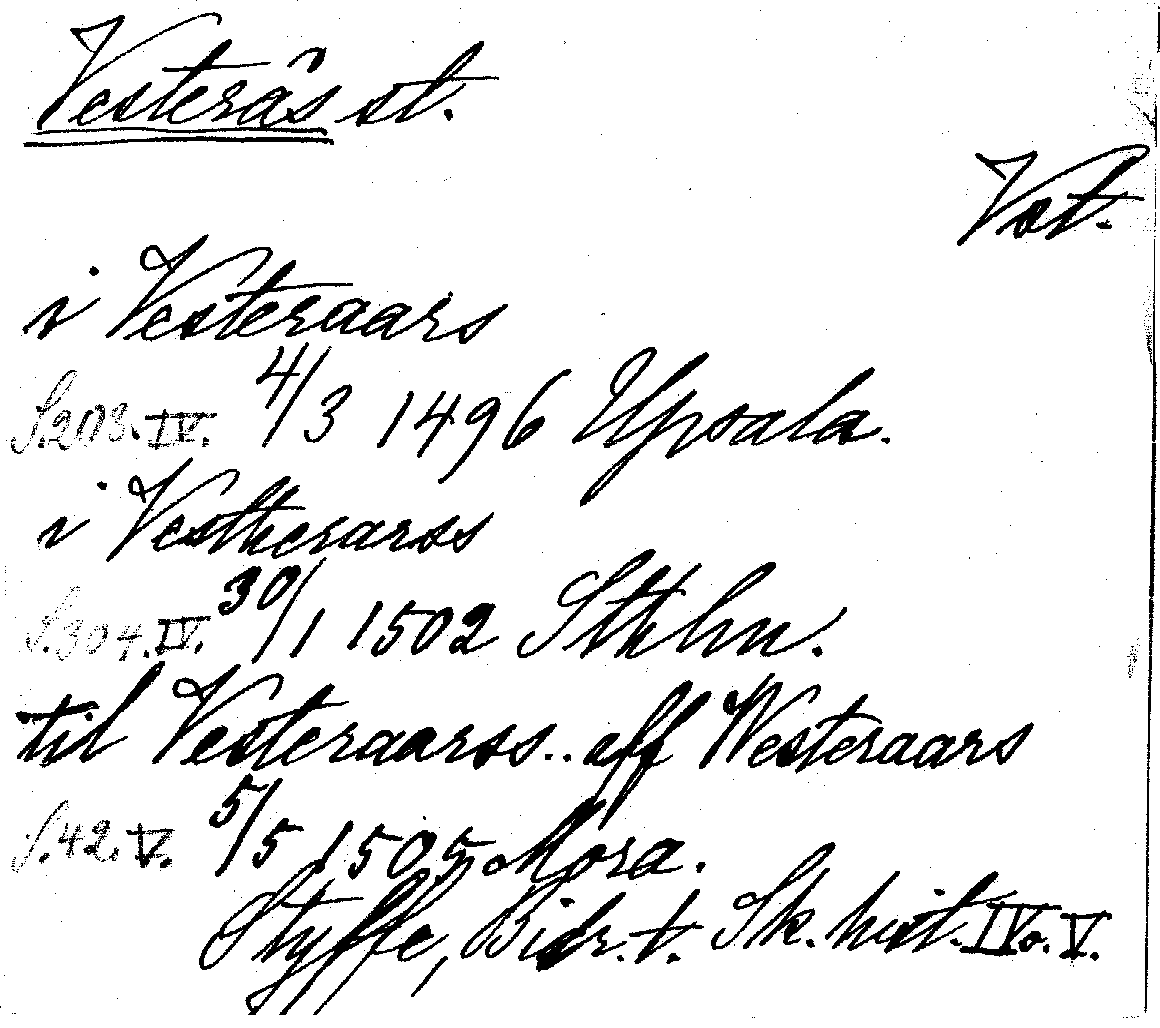 Vesterås st.
Vst.
i Vesteraars
S.203.IV. 4/3 1496 Upsala.
i Vestherarss
S.304.IV. 30/1 1502 Sthlm.
til Vesteraarss.. aff Westeraars
S.42.V. 5/5 1505 Mora.
Styffe, Bidr. t. Sk. hist. IV o. V.